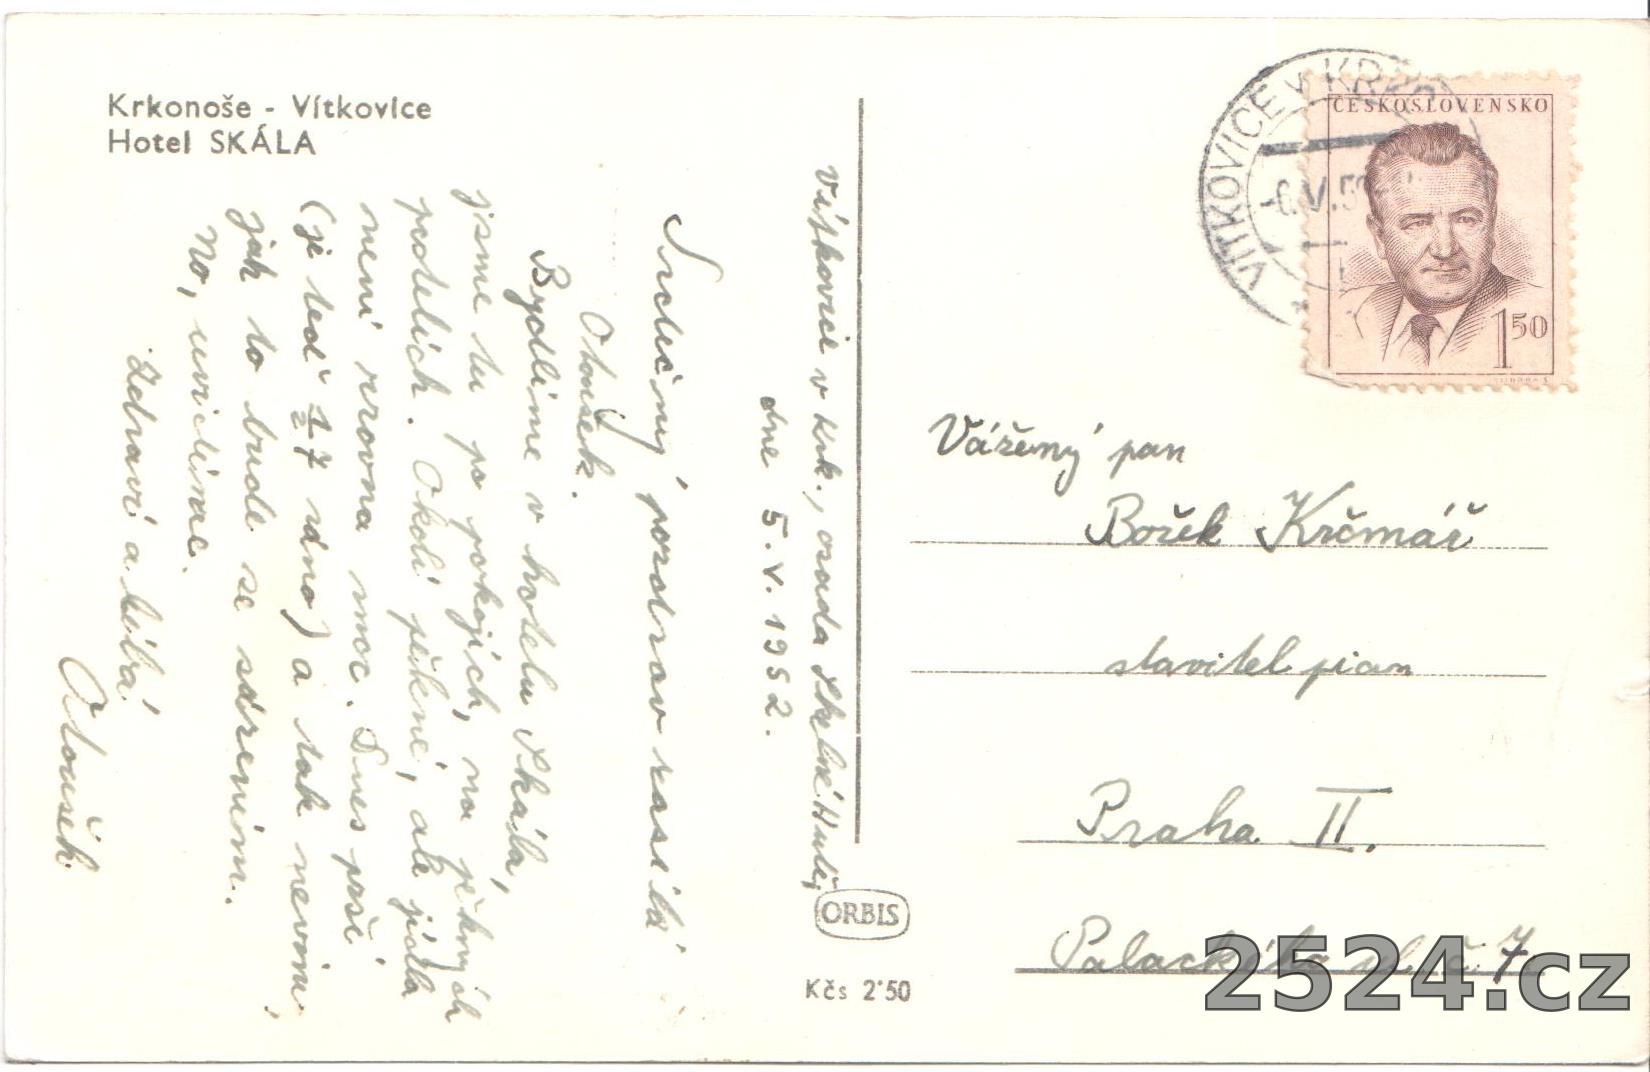 Krkonoše - Vítkovice
Hotel SKÁLA
Vítkovice v Krk., osada Skelné Hutě,
dne 5. V. 1952.
Srdečný pozdrav zasílá
Otoušek.
Bydlíme v hotelu Skála,
jsme tu po pokojích, na pěkných
postelích. Okolí pěkné, ale jídla
není zrovna moc. Dnes prší
(je teď 1/2 7 ráno) a tak nevím,
jak to bude se sázením.
No, uvidíme.
Zdraví a líbá
Otoušek.
VÍTKOVICE V KRK
-6.V.52
ČESKOSLOVENSKO
1 50
Vážený pan
Božek Krčmář
stavitel pian
Praha II.
Palackého ul. č. 7
ORBIS
Kčs 2'50
2524.cz